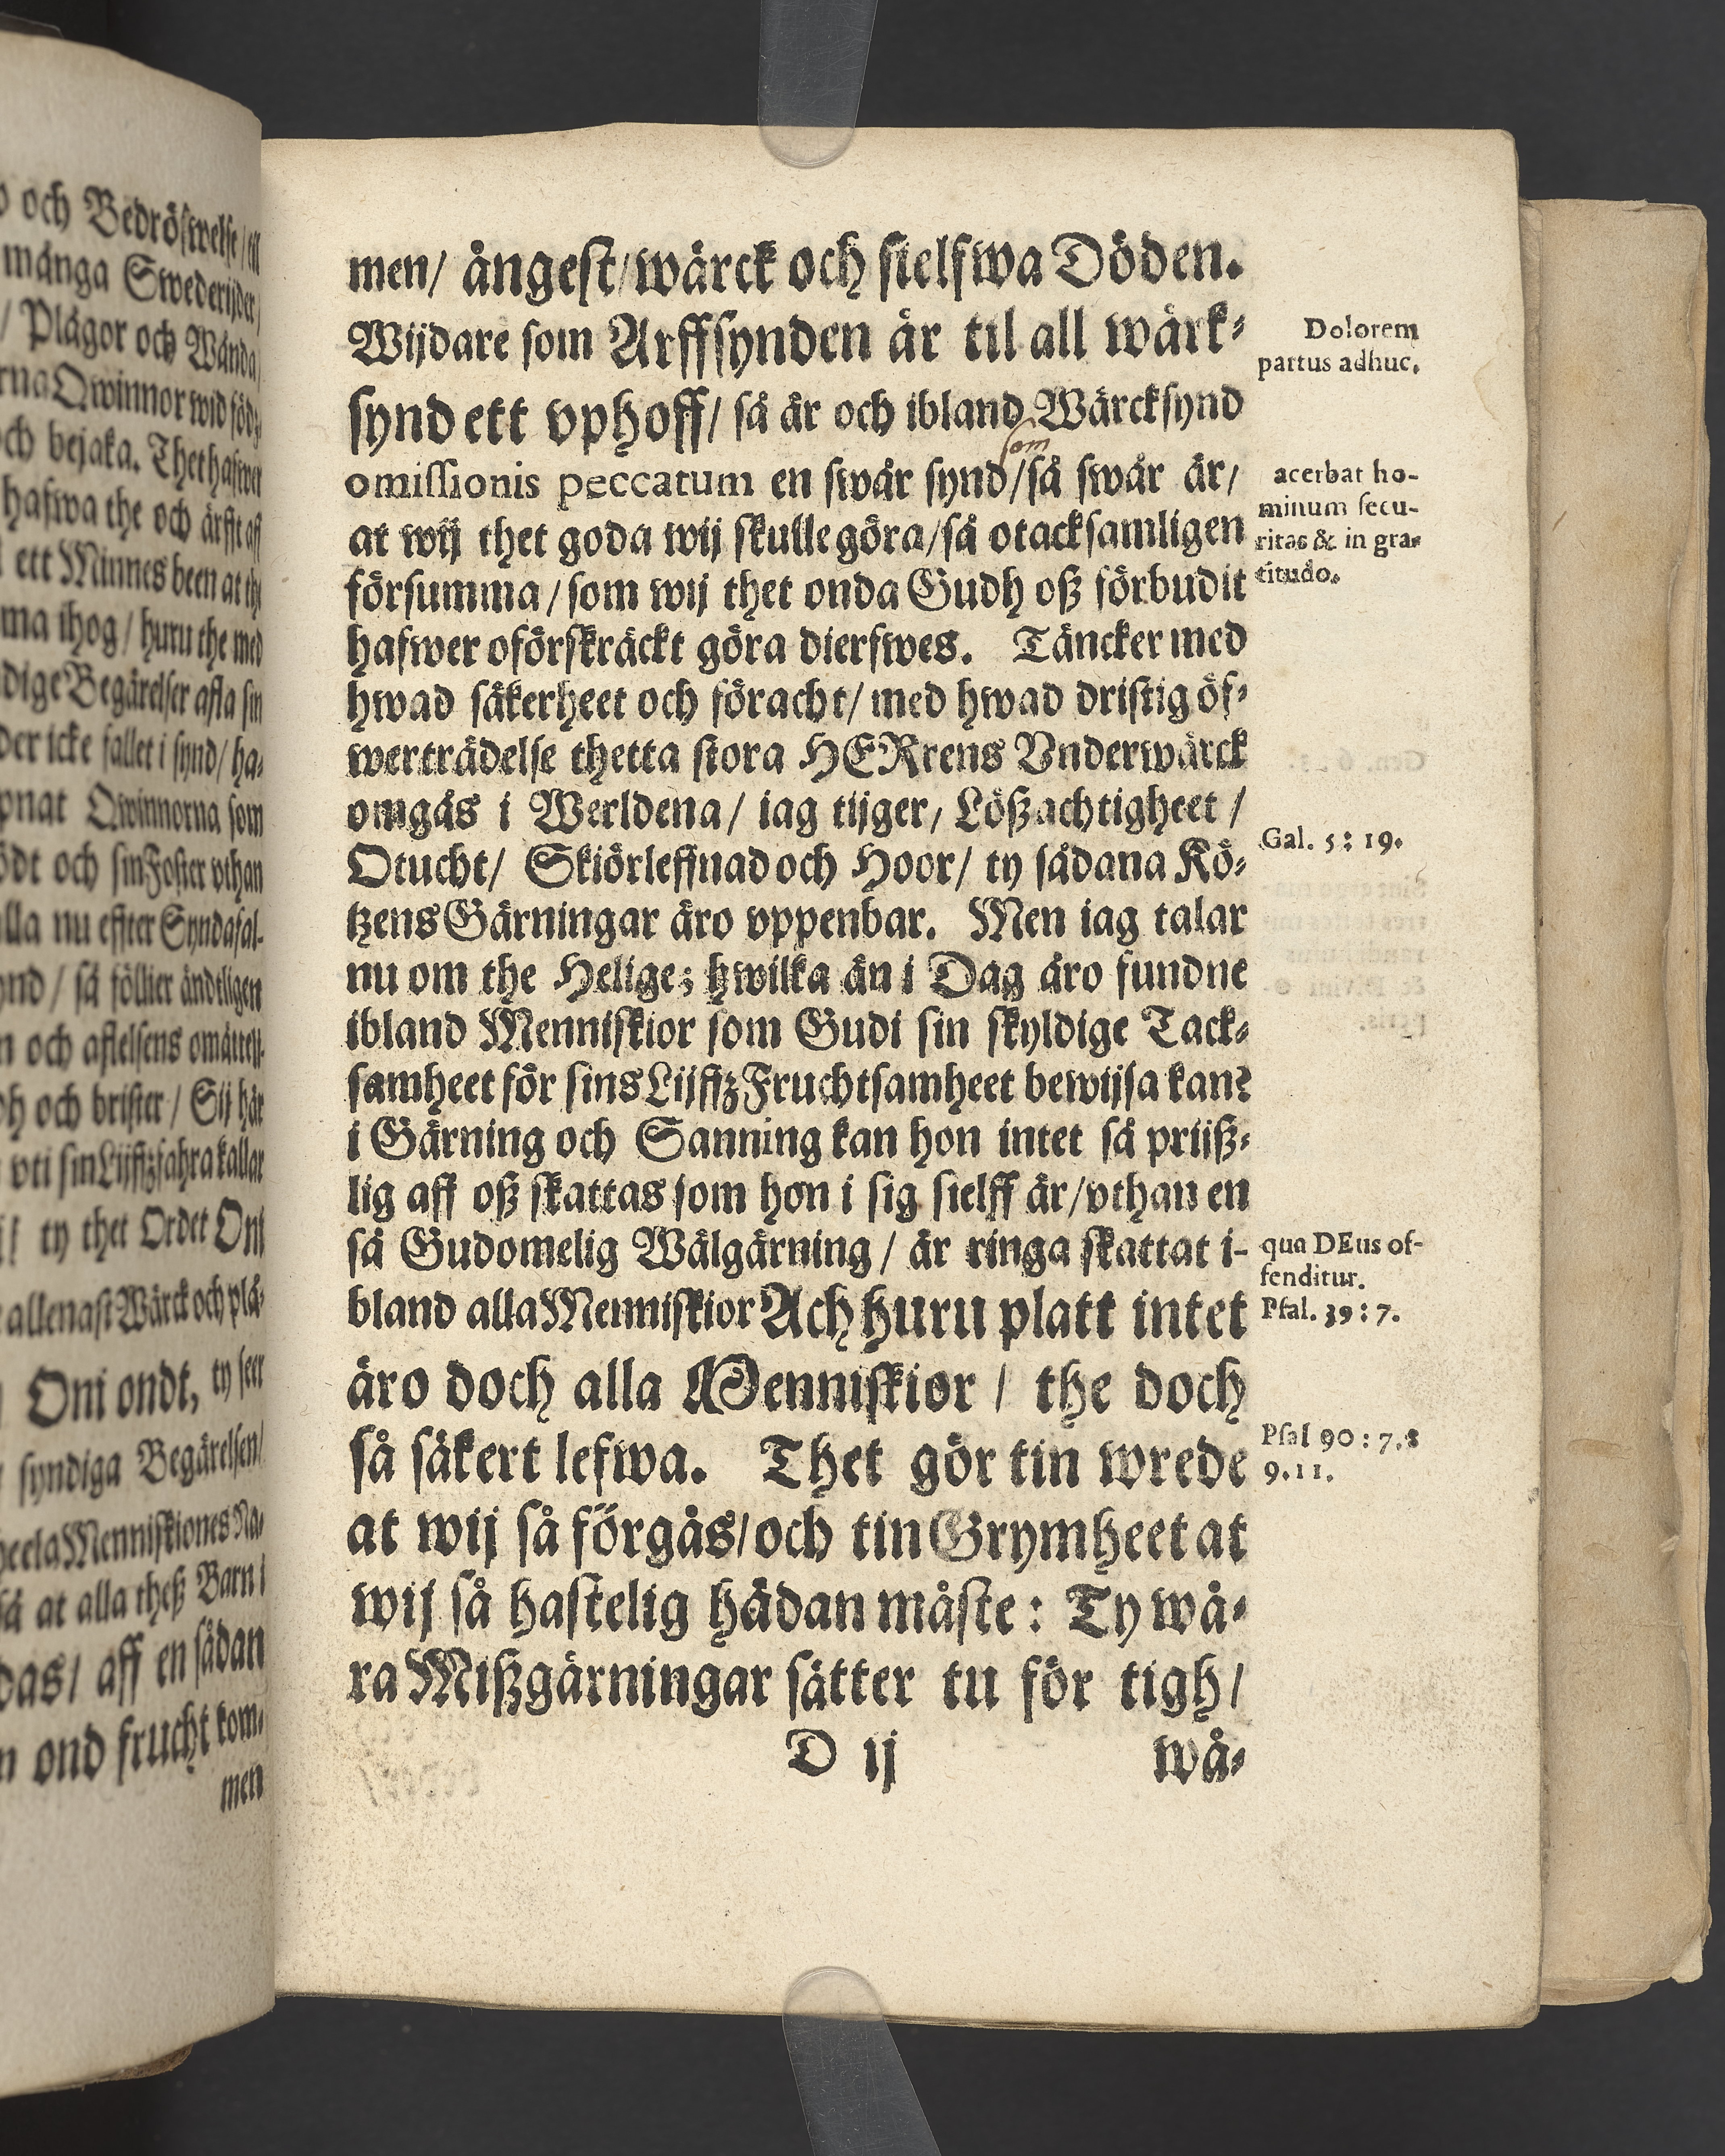 men/ ångest/ wärck och sielfwa Döden.
Wijdare som Arffsynden är til all wärk-
synd ett vphoff/ så är och ibland Wärcksynd
som
omissionis peccatum en swår synd/ så swår är/
at wij thet goda wij skulle göra/ så otacksamligen
försumma/ som wij thet onda Gudh oß förbudit
hafwer oförskräckt göra dierfwes. Täncker med
hwad säkerheet och föracht/ med hwad dristig öf-
werträdelse thetta stora HERrens Vnderwärck
omgås i Werldena/ iag tijger, Lößachtigheet/
Otucht/ Skiörleffnad och Hoor/ ty sådana Kö-
tzens Gärningar äro vppenbar. Men iag talar
nu om the Helige; hwilka än i Dag äro fundne
ibland Menniskior som Gudi sin skyldige Tack-
samheet för sins Lijffz Fruchtsamheet bewijsa kan?
i Gärning och Sanning kan hon intet så priiß-
lig aff oß skattas som hon i sig sielff är/ vthan en
så Gudomelig Wälgärning/ är ringa skattat i-
bland alla Menniskior Ach huru platt intet
äro doch alla Menniskior/ the doch
så säkert lefwa. Thet gör tin wrede
at wij så förgås/ och tin Grymheet at
wij så hastelig hädan måste: Ty wå-
ra Mißgärningar sätter tu för tigh/
D ij
wå-
Dolorem
partus adhuc.
acerbat ho-
minum secu-
ritas & in gra-
titudo.
Gal. 5: 19.
qua DEus of-
fenditur.
Psal. 39: 7.
Psal 90: 7. 8
9. 11.
och Bedröfwelse/ til
många Swederijder/
/ Plågor och Wånda
Qwinnor wid föd-
och bejaka. Thet hafwer
hafwa the och ärfft aff
ett Minnes been at the
ihog/ huru the med
Begärelser afla sin
icke fallet i synd/ ha-
Qwinnorna som
och sin Foster vthan
nu effter Syndafal-
/ så föllier ändtligen
och aflelsens omåttelj-
och brister/ Sij här
vti sin Lijffzfahra kallar
ty thet Ordet Oni
allenast Wärck och plå-
Oni ondt, ty seer
syndiga Begärelsen/
heela Menniskiones Na-
så at alla theß Barn i
aff en sådan
ond frucht kom-
men